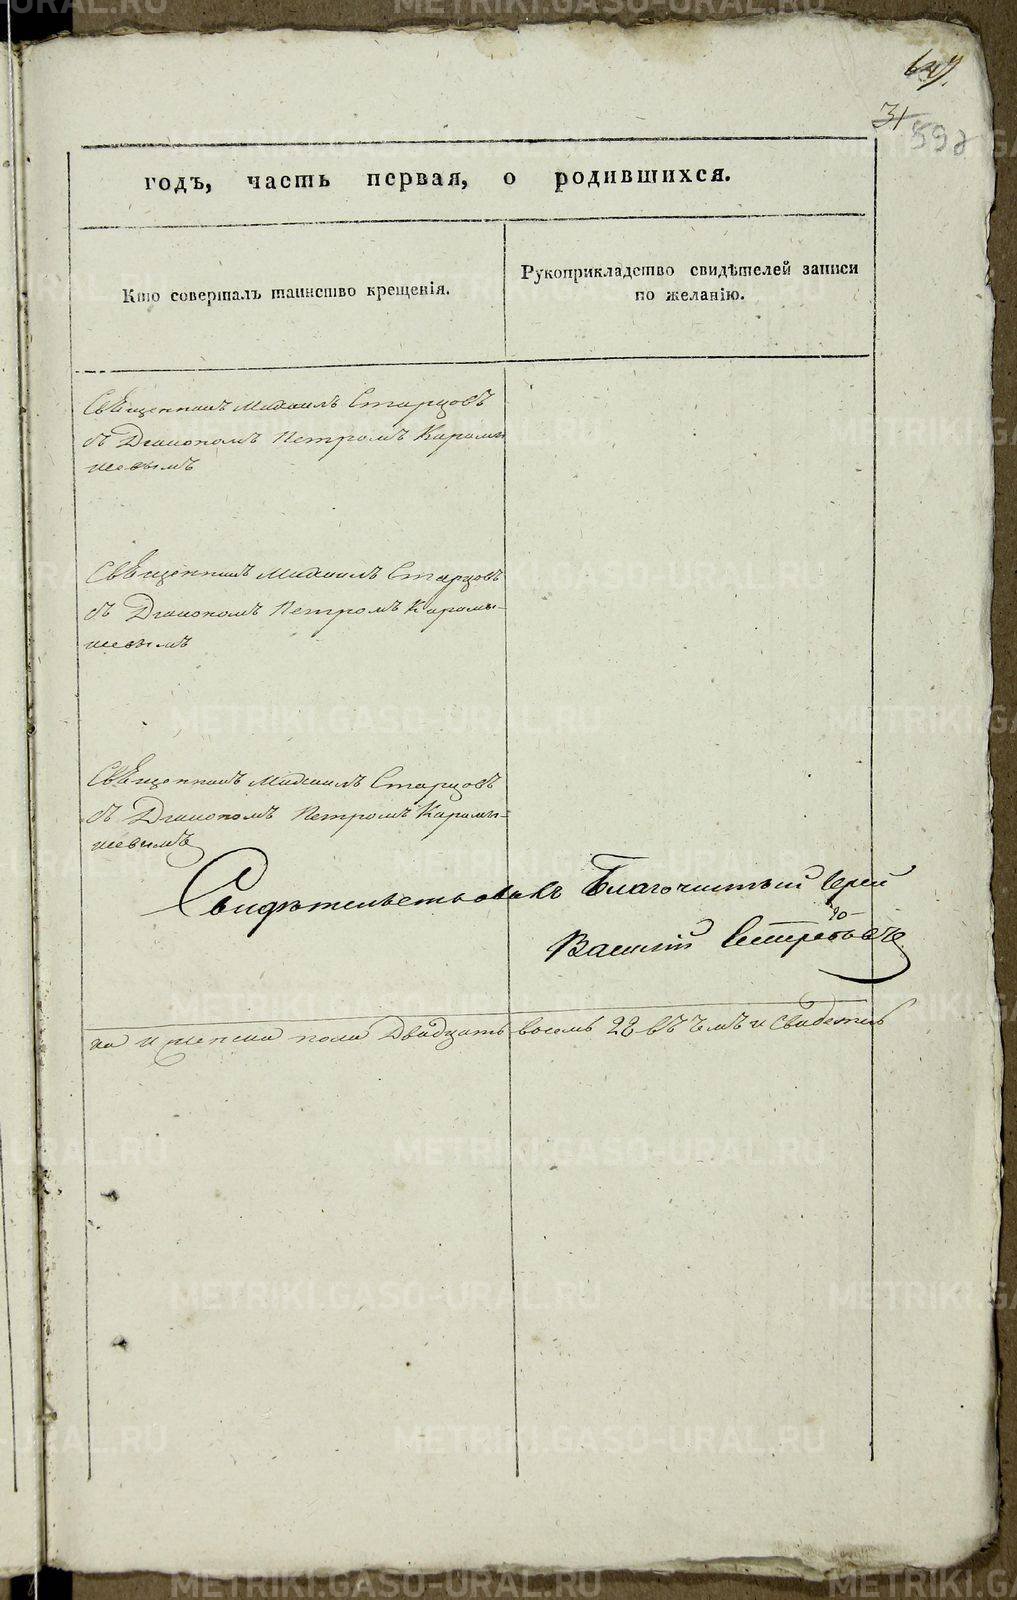 31
592
годъ, часть первая, о родившихся.
Кто совершалъ таинство крещенія.
Рукоприкладство свидѣтелей записи
по желанію.
Священникъ Михаилъ Старцовъ
съ Діакономъ Петромъ Карамы
шевымъ
Священникъ Михаилъ Старцовъ
съ Діакономъ Петромъ Карамы-
шевымъ
Священникъ Михаилъ Старцовъ
съ Діакономъ Петромъ Карамы-
шевымъ
Свидѣтельствовалъ Благочинный Іерей
Василий
на и женска пола Двадцать восемь 28 въ чемъ и свидетель
METRIKI.GASO-URAL.RU